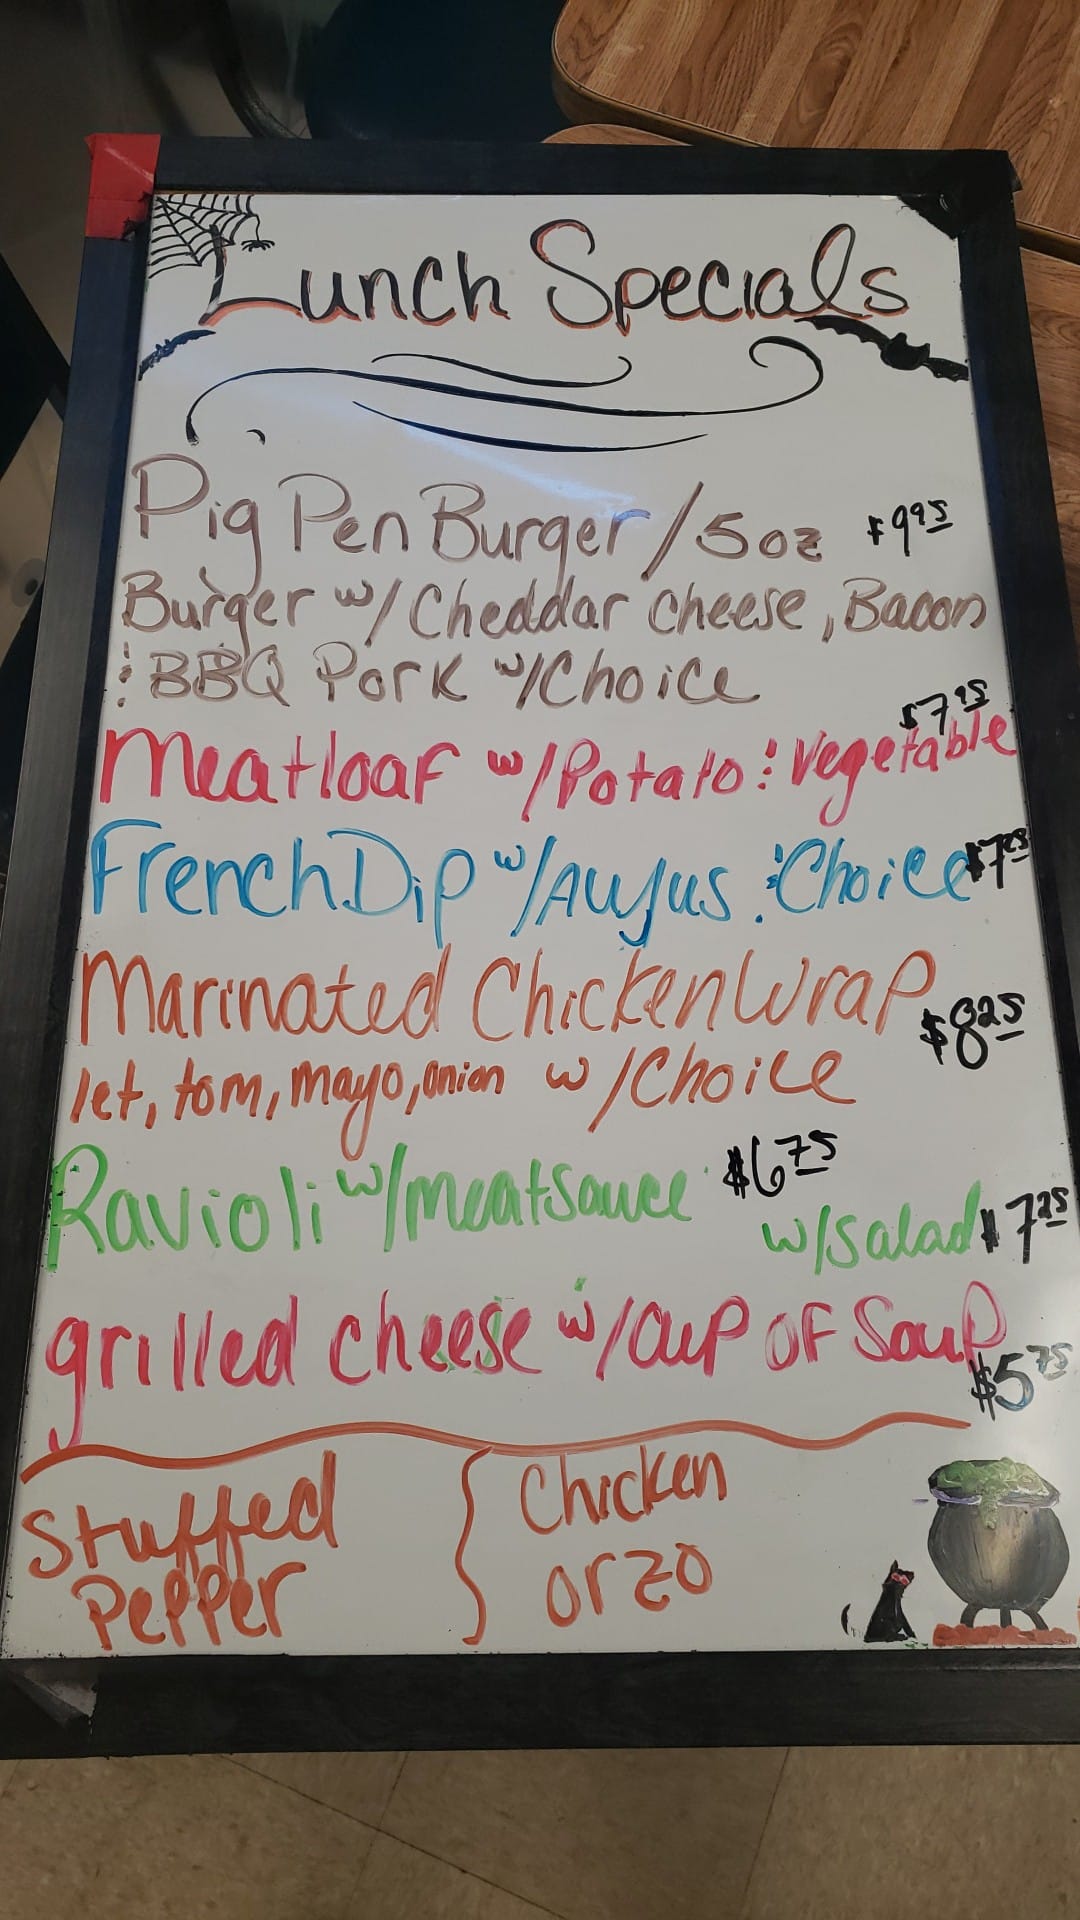 Lunch Specials
Pig Pen Burger / 5oz $9.95
Burger w/ Cheddar cheese, Bacon
& BBQ Pork w/Choice
$7.95
Meatloaf w/Potato & Vegetable
French Dip w/Aujus & Choice
Marinated Chicken Wrap
$8.25
let, tom, mayo, onion w/Choice
Ravioli w/meatsauce $6.75
w/salad $7.25
grilled cheese w/cup of Soup
$5.75
Stuffed
Pepper
Chicken
orzo